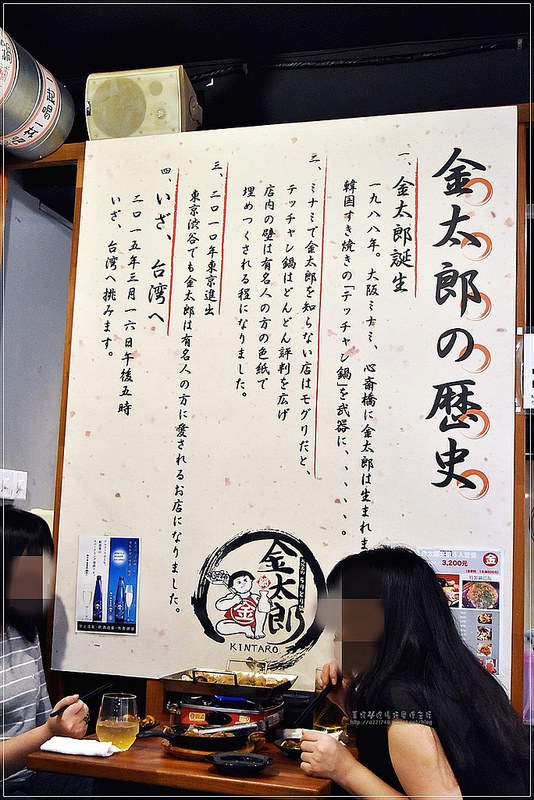 金太郎の歴史
一、金太郎誕生
一九八八年。大阪ミナミ、心斎橋に金太郎は生まれま
韓国すき焼きの「テッチャン鍋」を武器に、、、、、。
二、ミナミで金太郎を知らない店はモグリだと、
テッチャン鍋はどんどん評判を広げ
店内の壁は有名人の方の色紙で
埋めつくされる程になりました。
三、二〇一〇年東京進出
東京渋谷でも金太郎は有名人の方に愛されるお店になりました。
四、いざ、台湾へ
二〇一五年三月一六日午後五時
いざ、台湾へ挑みます。
金太郎
金
KINTARO
3,200元
金